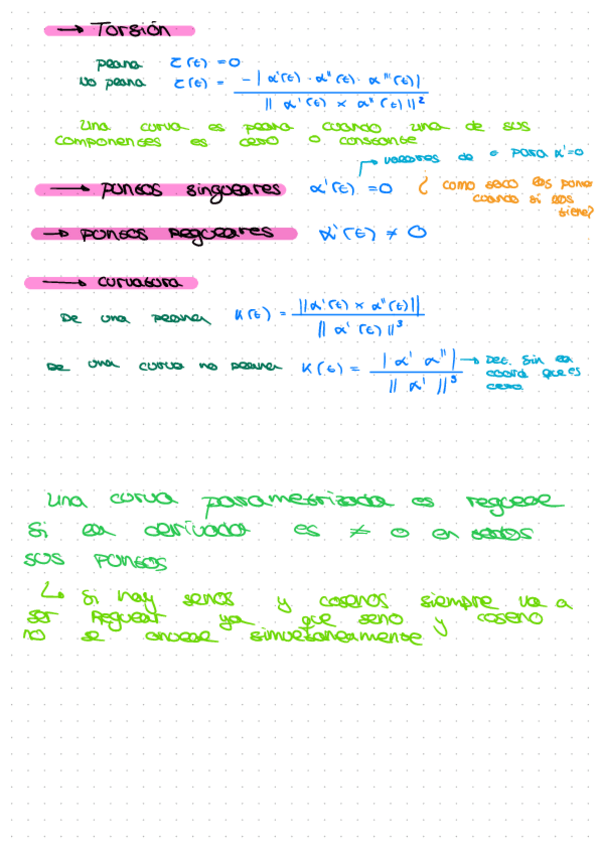 → Torsión
plana τ(t) = 0
No plana τ(t) = - | α'(t) · α''(t) · α'''(t) | / || α'(t) × α''(t) ||²
Una curva es plana cuando una de sus
componentes es cero o constante
→ valores de t para α'=0
→ puntos singulares α'(t) = 0 ¿ como saco los puntos
cuando si los
tiene?
→ puntos regulares α'(t) ≠ 0
→ curvatura
De una plana K(t) = || α'(t) × α''(t) || / || α'(t) ||³
De una curva no plana K(t) = | α' α'' | / || α' ||³ → Det. sin la
coord que es
cero.
Una curva parametrizada es regular
si la derivada es ≠ 0 en todos
sus puntos
↳ Si hay senos y cosenos siempre va a
ser regular ya que seno y coseno
no se anulan simultáneamente